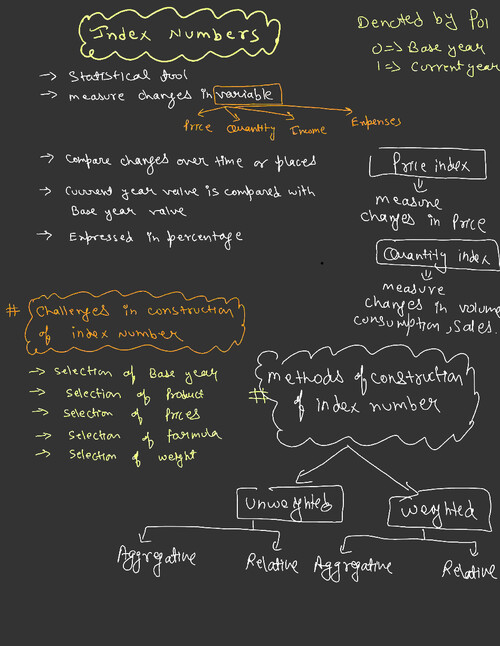 Index Numbers
Denoted by P01
0=> Base year
1=> Current year
→ Statistical tool
→ measure changes in variable
Price Quantity Income Expenses
→ Compare changes over time or places
→ Current year value is compared with
Base year value
→ Expressed in percentage
Price index
measure
changes in Price
Quantity index
measure
changes in volume
consumption, Sales.
# Challenges in construction
of index number
→ Selection of Base year
→ Selection of Product
→ Selection of Prices
→ Selection of formula
→ Selection of weight
# methods of construction
of index number
Unweighted
Weighted
Aggregative Relative Aggregative Relative